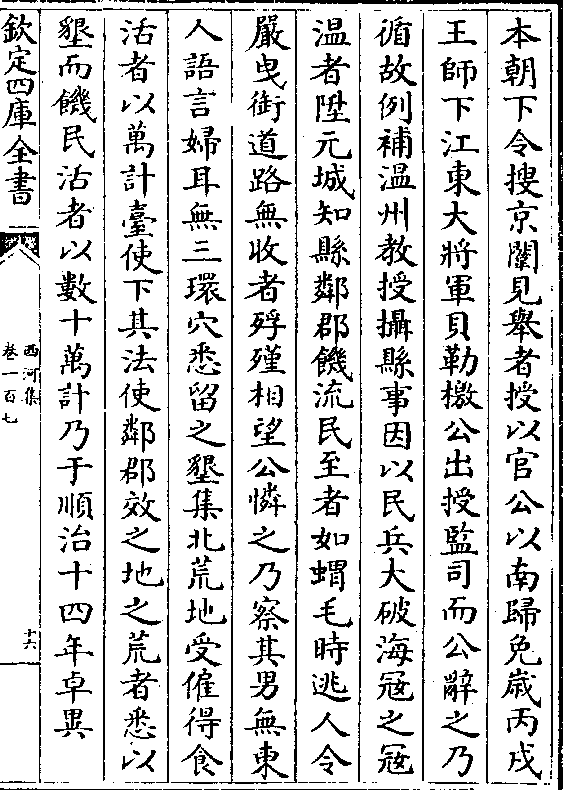 本朝下令搜京闈見舉者授以官公以南歸免歲丙戌
王師下江東大將軍貝勒檄公出授監司而公辭之乃
循故例補温州教授攝縣事因以民兵大破海冦之冦
温者陞元城知縣鄰郡饑流民至者如蝟毛時逃人令
嚴曳街道路無收者殍殣相望公憐之乃察其男無東
人語言婦耳無三環穴悉留之墾集北荒地受傭得食
活者以萬計臺使下其法使鄰郡效之地之荒者悉以
墾而饑民活者以數十萬計乃于順治十四年卓異
欽定四庫全書
西河集
卷一百七
十六